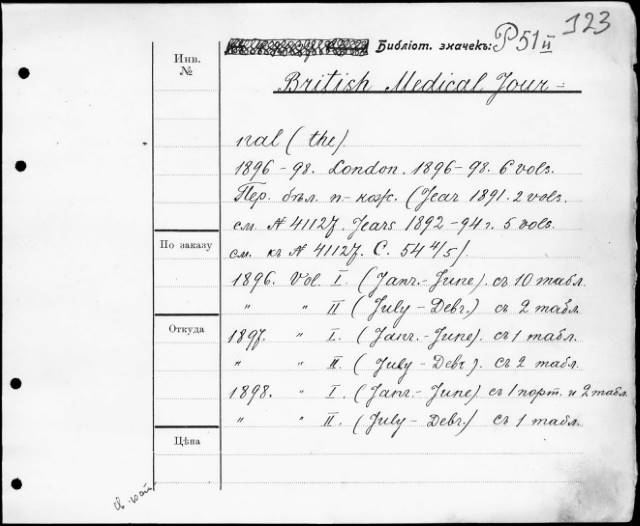 123
Библіот. значекъ: P 51 II
Инв.
№
British Medical Jour=
nal (the)
1896-98. London. 1896-98. 6 vols.
Пер. бѣл. п-кож. (Year 1891. 2 vols.
см. № 41127. Years 1892-94 г. 5 vols.
По заказу
см. къ № 41127. С. 54 4/5)
1896. Vol. I. (Janr.-June). съ 10 табл.
" " II (July-Debr.) съ 2 табл.
Откуда
1897. " I. (Janr.-June). съ 1 табл.
" " II. (July-Debr). съ 2 табл.
1898. " I (Janr-June) съ 1 порт. и 2 табл.
" " II. (July-Debr.) съ 1 табл.
Цѣна